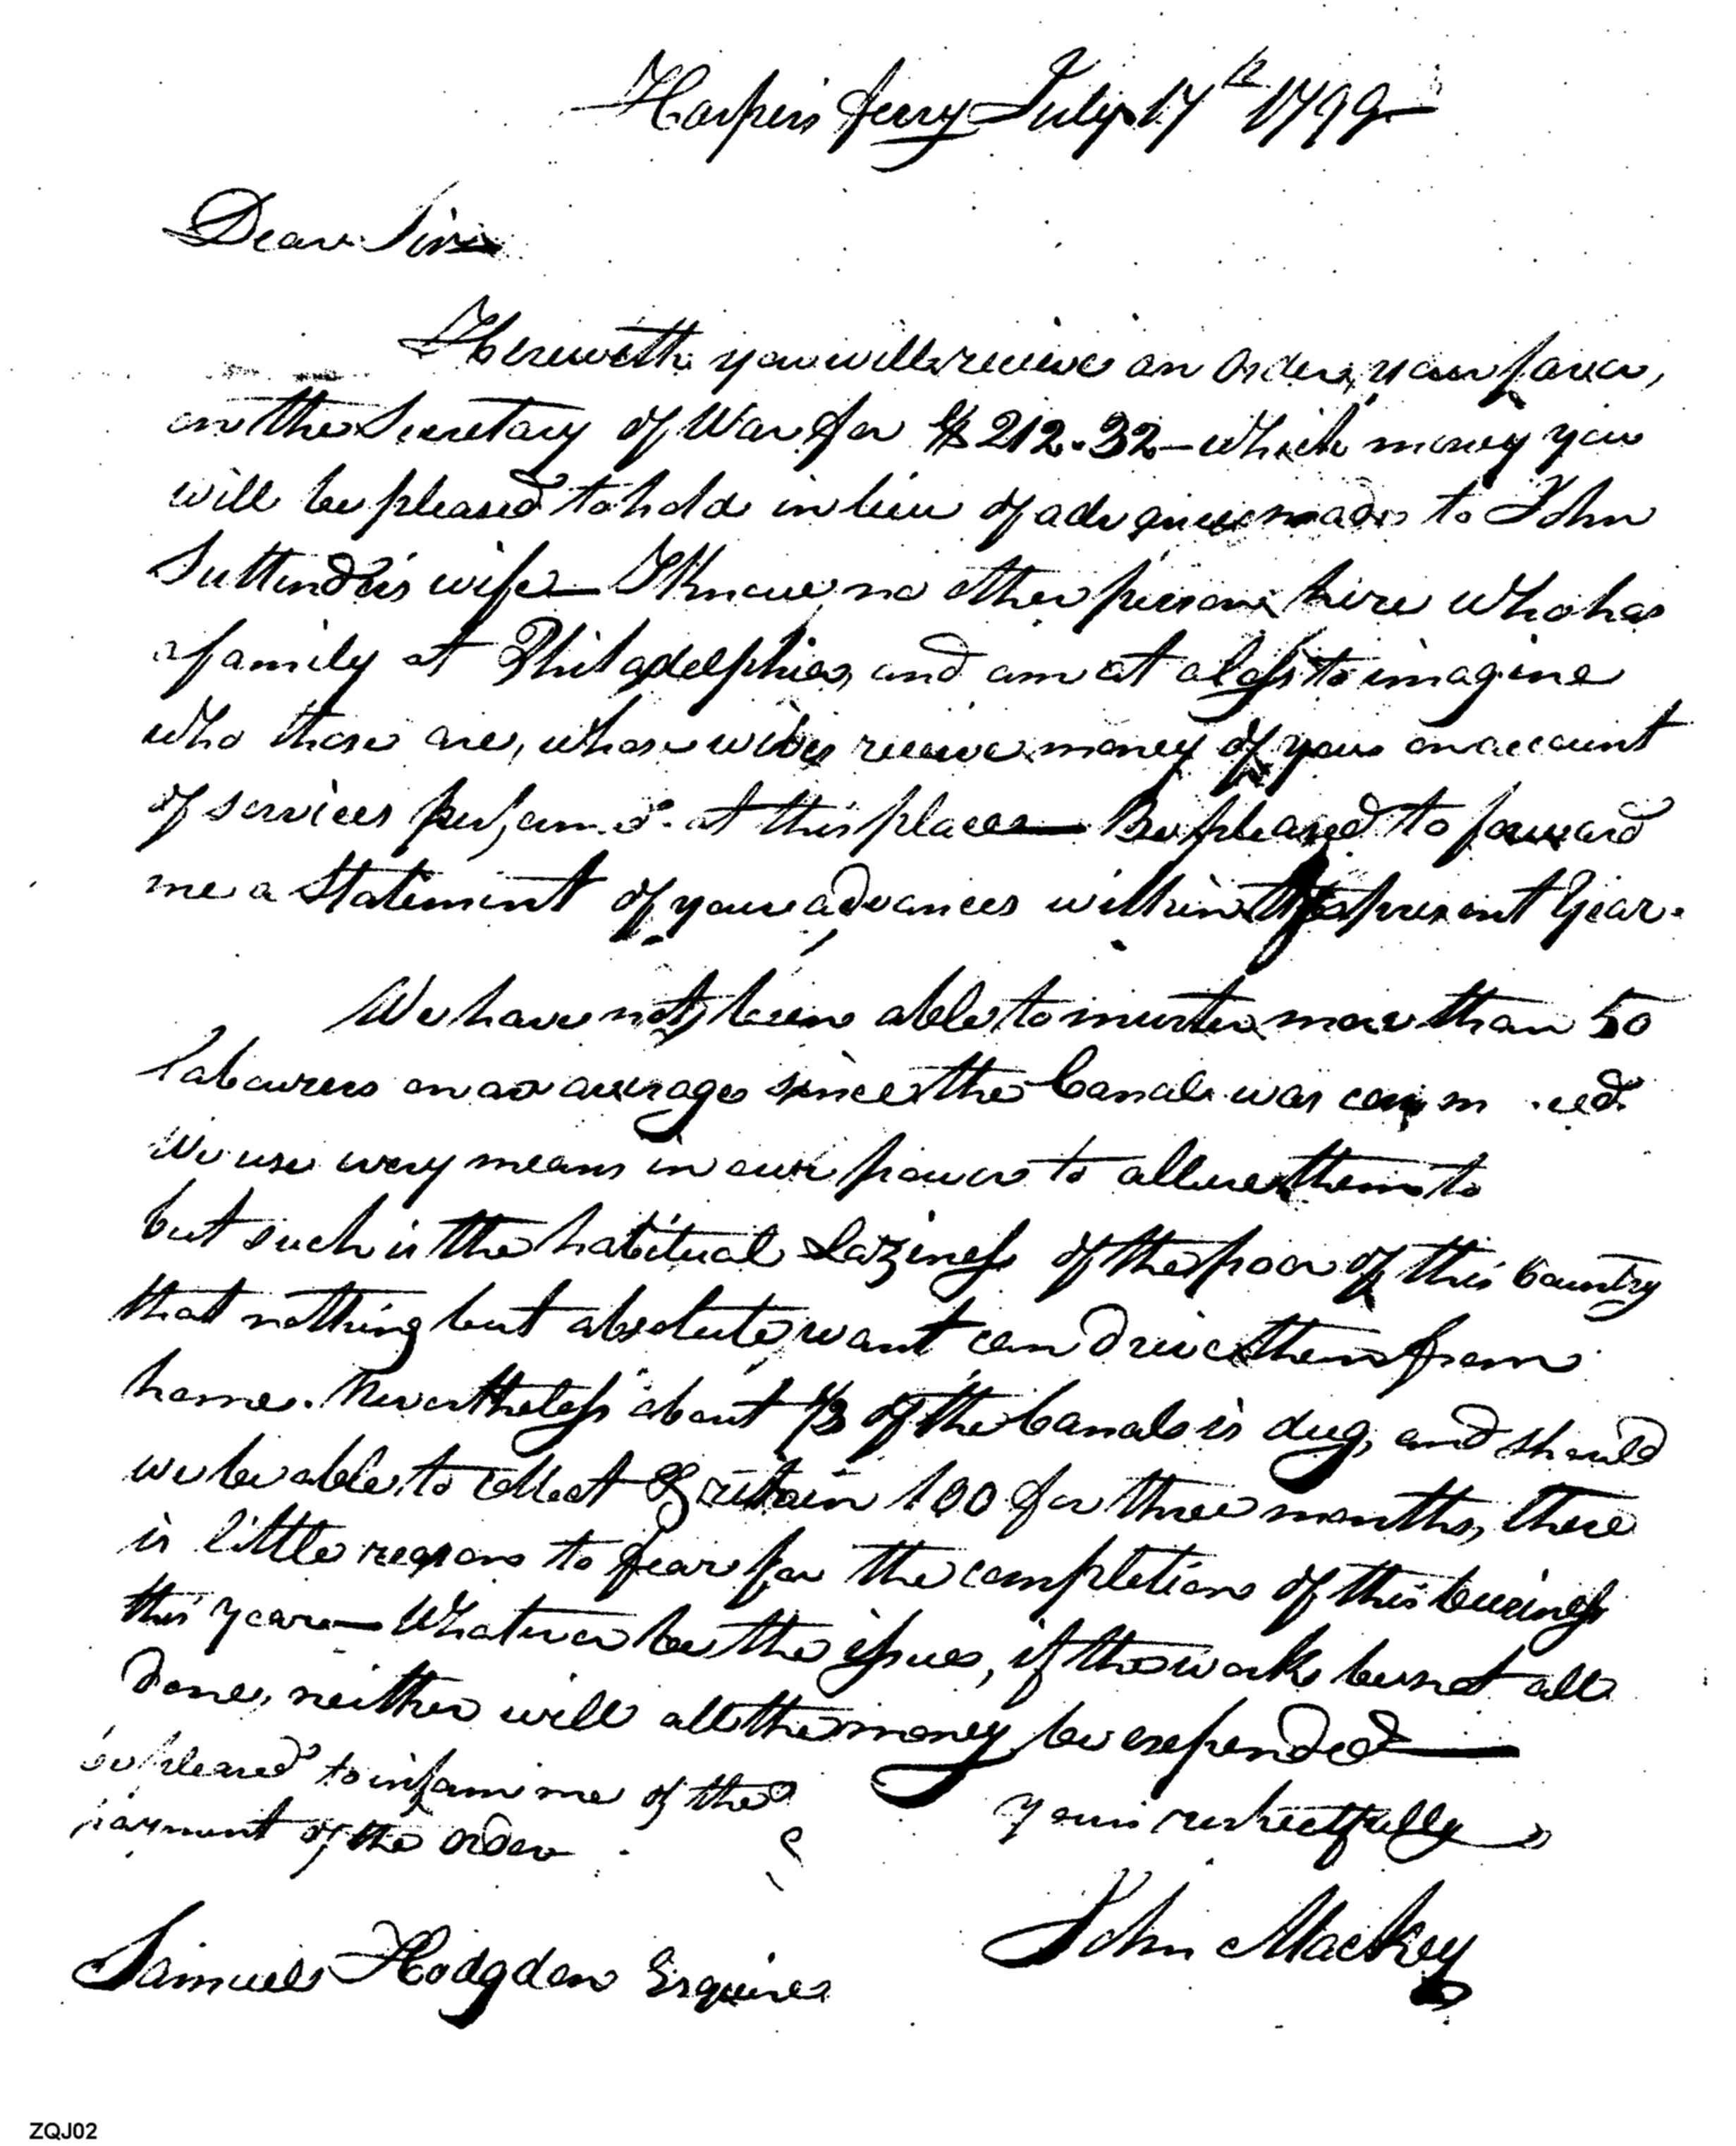 Harpers ferry July 17th 1799
Dear Sir
Herewith you will receive an order, your favor,
on the Secretary of War for $212.32 — which money you
will be pleased to hold in lieu of advances made to John
wife — I know no other person here who has
a family at Philadelphia, and am at a loss to imagine
who those are, whose wives receive money of you on account
of services perform'd at this place — Be pleased to forward
me a Statement of your advances within the present Year.
We have not been able to muster more than 50
labourers on an average since the Canal was comm ced
We use every means in our power to allure them to
but such is the habitual laziness of the poor of this Country
that nothing but absolute want can drive them from
home. Nevertheless about 1/3 of the Canal is dug, and should
we be able to collect & retain 100 for three months, there
is little reason to fear for the completion of this business
this year — Whatever be the issue, if the work be not all
done, neither will all the money be expended —
be pleased to inform me of the
payment of the order
yours respectfully
John Mackey
Samuel Hodgdon Esquire
ZQJ02